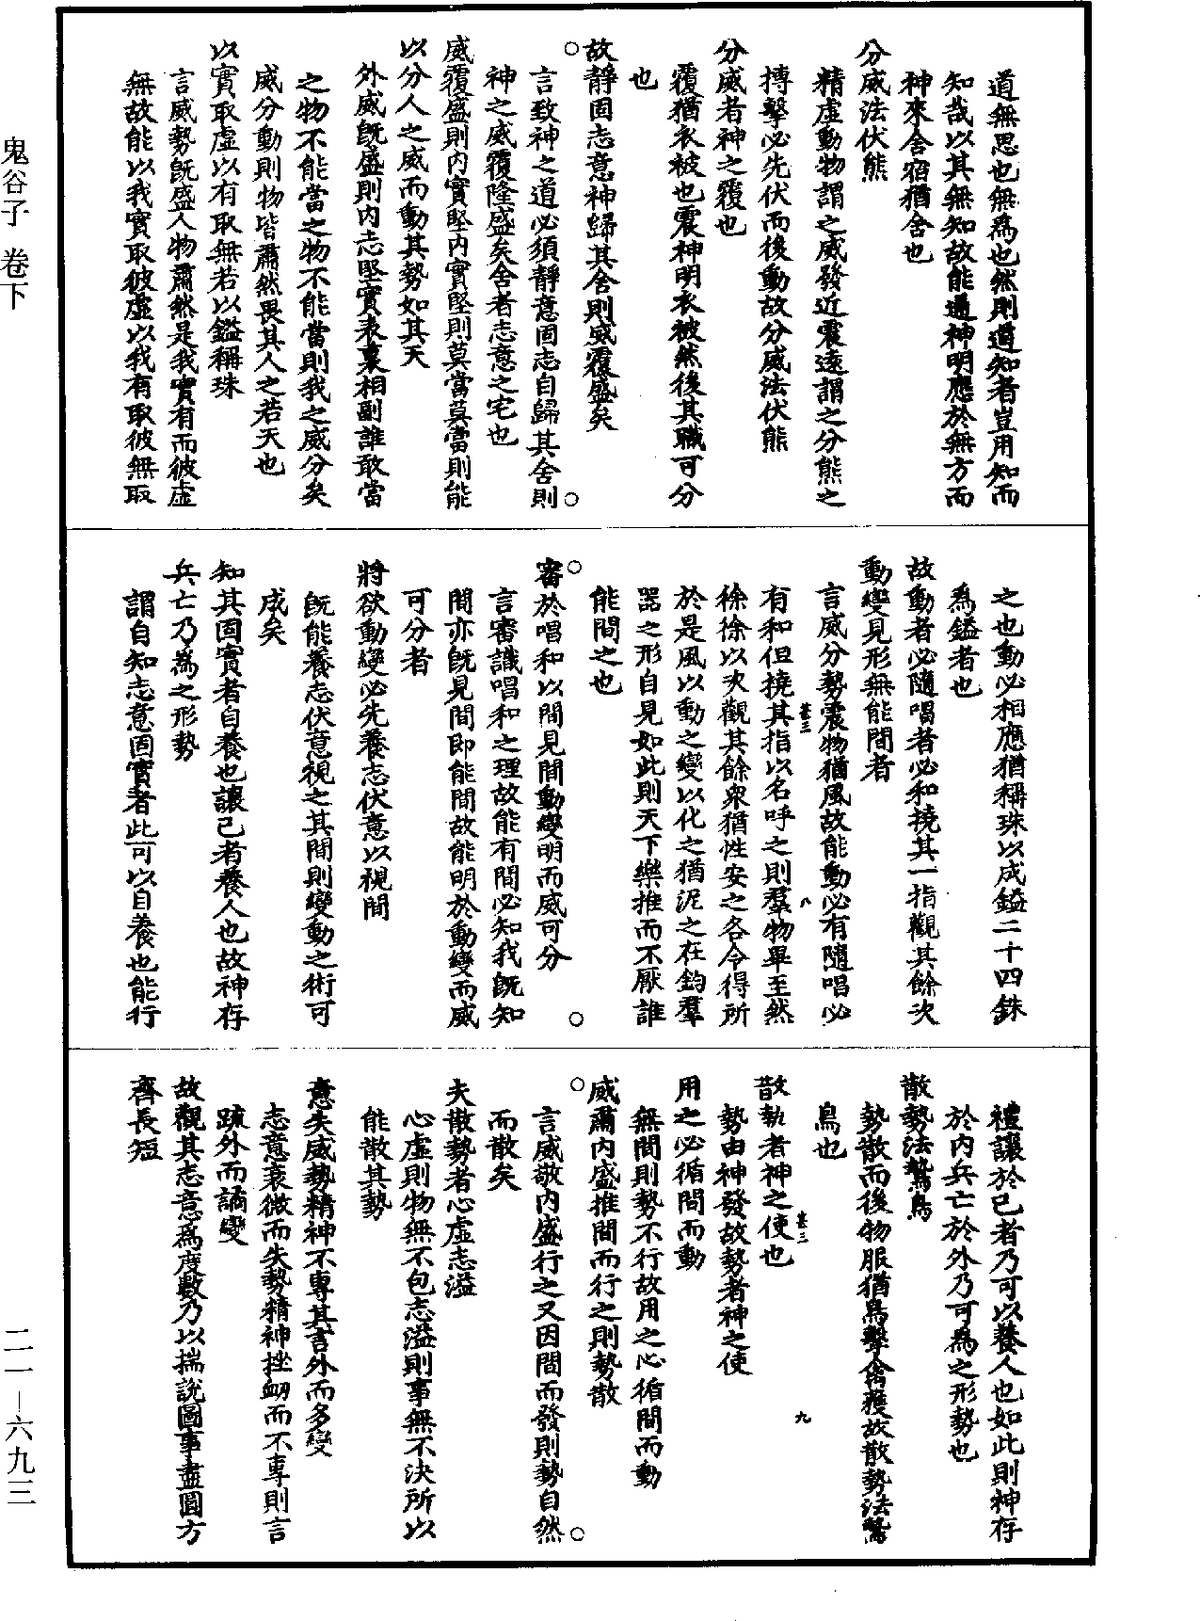 道無思也無爲也然則道知者豈用知而
知哉以其無知故能通神明應於無方而
神來舍宿猶舍也
分威法伏熊
精虛動物謂之威發近震遠謂之分熊之
搏擊必先伏而後動故分威法伏熊
分威者神之覆也
覆猶衣被也震神明衣被然後其職可分
也
故靜固志意神歸其舍則威覆盛矣
言致神之道必須靜意固志自歸其舍則
神之威覆隆盛矣舍者志意之宅也
威覆盛則内實堅内實堅則莫當莫當則能
以分人之威而動其勢如其天
外威旣盛則内志堅實表裏相副誰敢當
之物不能當之物不能當則我之威分矣
威分動則物皆肅然畏其人之若天也
以實取虛以有取無若以鎰稱珠
言威勢旣盛人物肅然是我實有而彼虛
無故能以我實取彼虛以我有取彼無取
之也動必相應猶稱珠以成鎰二十四銖
爲鎰者也
故動者必隨唱者必和撓其一指觀其餘次
動變見形無能間者
言威分勢震物猶風故能動必有隨唱必
有和但撓其指以名呼之則羣物畢至然
徐徐以次觀其餘衆猶性安之各令得所
於是風以動之變以化之猶泥之在鈞羣
器之形自見如此則天下樂推而不厭誰
能間之也
審於唱和以間見間動變明而威可分
言審識唱和之理故能有間必知我旣知
間亦旣見間即能間故能明於動變而威
可分者
將欲動變必先養志伏意以視間
旣能養志伏意視之其間則變動之術可
成矣
知其固實者自養也讓己者養人也故神存
兵亡乃爲之形勢
謂自知志意固實者此可以自養也能行
禮讓於己者乃可以養人也如此則神存
於内兵亡於外乃可爲之形勢也
散勢法鷙鳥
勢散而後物服猶鳥擊禽獲故散勢法鷙
鳥也
散執者神之使也
勢由神發故勢者神之使
用之必循間而動
無間則勢不行故用之心循間而動
威肅内盛推間而行之則勢散
言威敬内盛行之又因間而發則勢自然
而散矣
夫散勢者心虛志溢
心虛則物無不包志溢則事無不決所以
能散其勢
意失威勢精神不專其言外而多變
志意衰微而失勢精神挫衂而不專則言
疏外而譎變
故觀其志意爲度數乃以揣說圖事盡圓方
齊長短
卷三
八
卷三
九
鬼谷子 卷下
二一－六九三